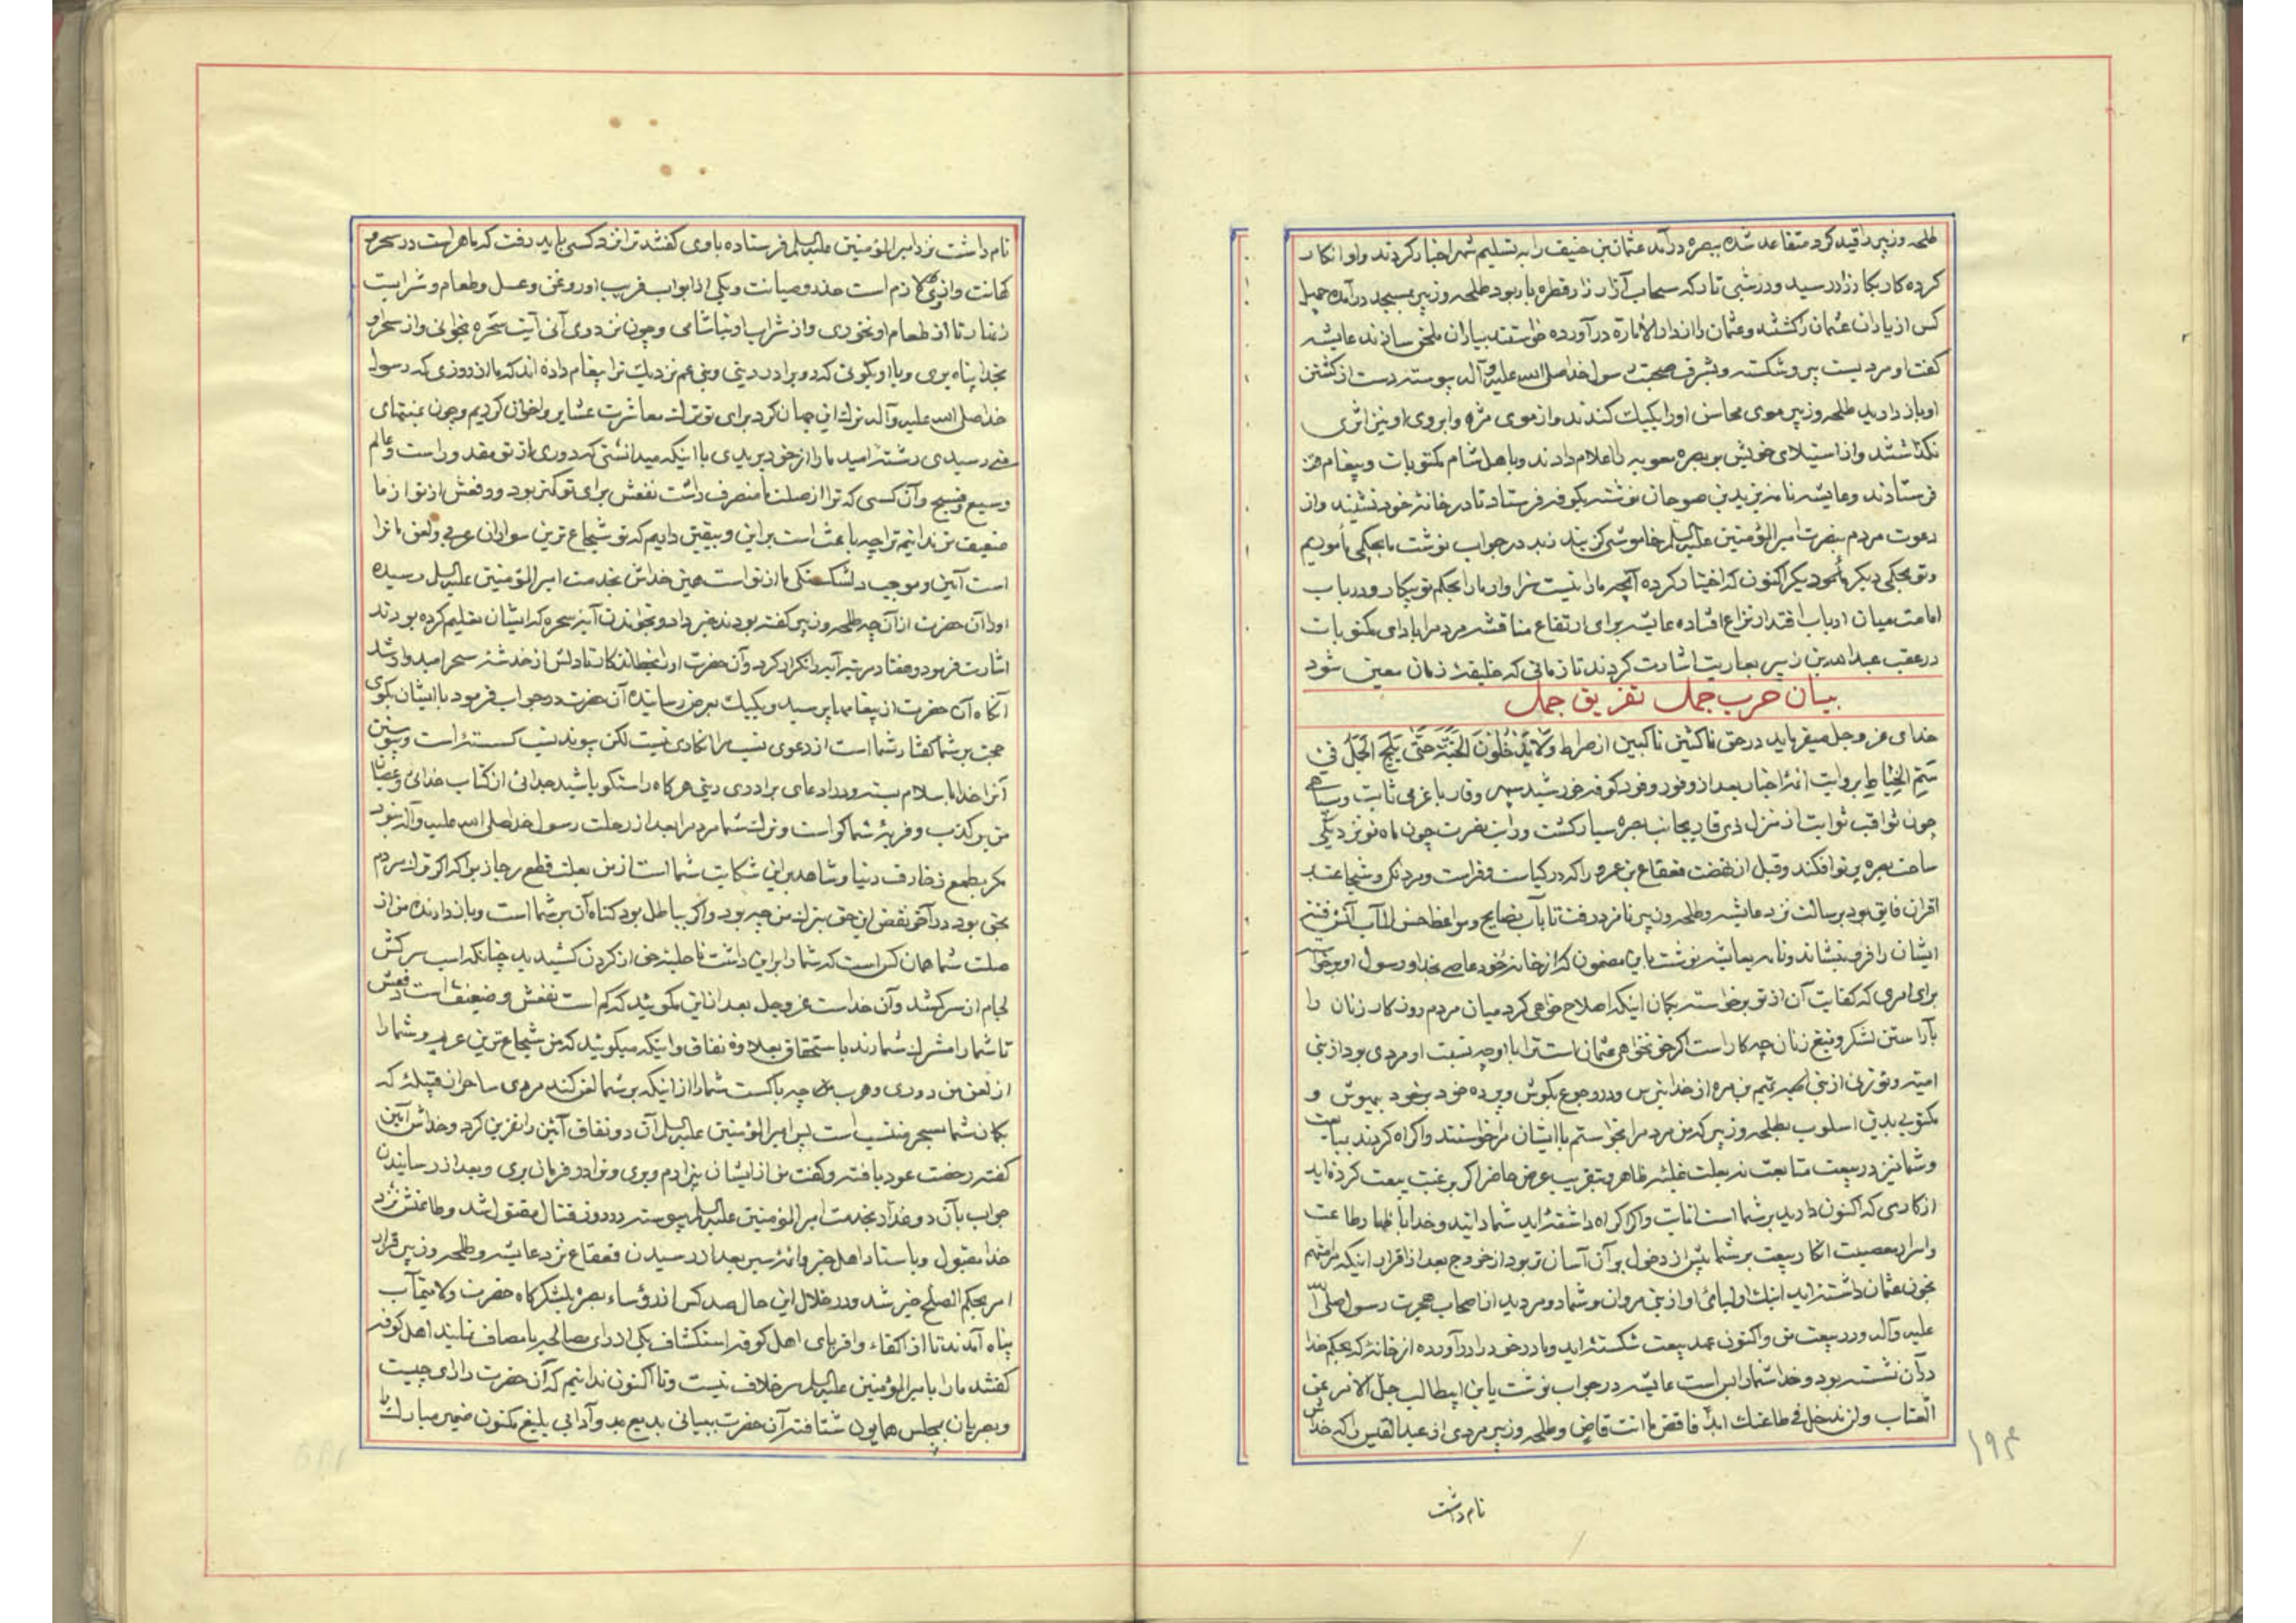 طلحه و زبیر را قید کرد متقاعد شده ببصره درآمد عثمان بن حنیف را به تسلیم شهر اخبار کردند و او انکار
کرده کار بکارزار رسید و در شبی تار که سحاب آزار زار قطره بار بود طلحه و زبیر بمسجد درآمده چهل
کس از یاران عثمان را کشته و عثمان را از دار الاماره درآورده خواستند بیاران ملحق سازند عایشه
گفت او مردیست پیر و شکسته و بشرف صحبت رسول خدا صلی الله علیه و آله پیوسته دست از کشتن
او باز دارید طلحه و زبیر موی محاسن او را یکیک کندند و از موی مژه و ابروی او نیز اثری
نگذاشتند و از استیلای خویش بر بصره معویه را اعلام دادند و باهل شام مکتوبات و پیغام
فرستادند و عایشه نامه بزید بن صوحان نوشته بکوفه فرستاد تا در خانه خود نشیند و از
دعوت مردم بنصرت امیر المؤمنین علیه السلم خاموشی گزیند زید در جواب نوشت ما بحکمی مأموریم
و تو بحکمی دیگر مأمور دیگر اکنون که اختیار کرده آنچه ما را نیست سزاوار ما را بحکم تو چکار و در باب
امامت میان ارباب اقتدار نزاع افتاده عایشه برای ارتفاع مناقشه مردم را بادای مکتوبات
در عقب عبد الله بن زبیر بعاریت اشارت کردند تا زمانی که خلیفه زمان معین شود
بیان حرب جمل تفریق جمل
خدای عز و جل میفرماید در حق ناکثین ناکبین از صراط وَلَا يَدْخُلُونَ الْجَنَّةَ حَتَّى يَلِجَ الْجَمَلُ فِي
سَمِّ الْخِيَاطِ بروایت ائمه اخبار بعد از وفور وفود کوفه خورشید سپهر وقار با عزمی ثابت و سپاهی
چون ثواقب ثوابت از منزل ذی قار بجانب بصره سیار گشت و رایت نصرت چون ماه نو نزدیکی
ساحت بصره پرتو افکند و قبل از نهضت قعقاع بن عمرو را که در کیاست و فراست و مردانگی و شجاعت بر
اقران فایق بود برسالت نزد عایشه و طلحه و زبیر نامزد رفت تا بآب نصایح و مواعظ حسن المآب آتش فتنه
ایشان را فرو نشاند و نامه بعایشه نوشت باین مضمون که از خانه خود عاصی بخدا و رسول او برخاسته
برای امری که کفایت آن از تو برخواسته بگمان اینکه اصلاح خواهی کرد میان مردم و زنان را
بآراستن لشکر و تیغ زنان چه کار است اگر خونخواهی عثمان است ترا با او چه نسبت او مردی بود از بنی
امیه و تو زنی از بنی تمیم بن مره از خدا بترس و در رجوع بکوش و پرده خود بر خود بپوش و
مکتوبی بدین اسلوب بطلحه و زبیر که من مردم را نخواستم تا ایشان مرا خواستند و اکراه کردند ببیعت
و شما نیز در بیعت متابعت نه بعلت غلبه ظاهر و تقریب عرض حاضر اگر برغبت بیعت کرده اید
از کاری که اکنون دارید بر شما است انابت و اگر اکراه داشته اید شما دانید و خدا باظهار طاعت
و اسرار معصیت انکار بیعت بر شما پیش از دخول بر آن آسان تر بود از خروج بعد از اقرار اینکه مرا متهم
بخون عثمان داشته اید اینک اولیای او از بنی مروان و شما دو مردید از اصحاب هجرت رسول صلی الله
علیه و آله و در بیعت من و اکنون عهد بیعت شکسته اید و مادر خود را درآورده از خانه که بحکم خدا
در آن نشسته بود و خدا شما را بس است عایشه در جواب نوشت یا ابن ابیطالب جل الامر عن
العتاب و لن ندخل فی طاعتک ابدا فاقض ما انت قاض و طلحه و زبیر مردی از عبد القیس را که خداش
نام داشت
۱۹۴
نام داشت نزد امیر المؤمنین علیه السلم فرستاده با وی گفتند ترا نزد کسی باید رفت که ماهر است در سحر و
کهانت و از وی لازم است حذر و صیانت و یکی از ابواب فریب او روغن و عسل و طعام و شرابست
زنهار تا از طعام او نخوری و از شراب او نیاشامی و چون نزد وی آئی آیت سخره بخوانی و از سحر او
بخدا پناه بری و با او بگوئی که دو برادر دینی و بنی عم نزدیک ترا پیغام داده اند که ما از روزی که رسول
خدا صلی الله علیه و آله ترک این جهان کرد برای تو ترک معاشرت عشایر و اخوان کردیم و چون بمنتهای
رسیدی رشته امید ما را از خود بریدی با اینکه میدانستی که دوری از تو مقدور است و عالم
وسیع و فسیح و آن کسی که ترا از صلت ما منصرف داشت نفعش برای تو کمتر بود و دفعش از تو از ما
ضعیف تر ندانیم ترا چه باعث است بر این و بیقین دانیم که تو شجاع ترین سواران عربی و لعن ما ترا
است آیین و موجب دلشکستگی ما از تو است همین خداش بخدمت امیر المؤمنین علیه السلم رسیده
او را آن حضرت از آن چه طلحه و زبیر گفته بودند خبر داد و بخواندن آیه سحره که ایشان تعلیم کرده بودند
اشارت فرمود و هفتاد مرتبه آیه را تکرار کرد و آن حضرت او را بخطا تا دلش از خدشه سحر امید وار شد
آنگاه آن حضرت از پیغامها پرسید و یکیک بعرض رسانیده آن حضرت در جواب فرمود با ایشان بگوی
حجت بر شما گفتار شما است از دعوی نسب مرا انکاری نیست لکن پیوند نسب گسسته است و پیوستن
آنرا خدا باسلام بسته و در ادعای برادری دینی هر گاه راستگو باشید جدائی از کتاب خدای و عصیان
من بر کذب و فریه شما گواست و ترک شما مردم را بعد از رحلت رسول خدا صلی الله علیه و آله نبود
مگر بطمع زخارف دنیا و شاهد بر این شکایت شما است از من بعلت قطع رجا زیرا که اگر ترک مردم
بحق بود در آخر نقض این حق بترک من چه بود و اگر بباطل بود گناه آن بر شما است و باز دارنده من از
صلت شما همان کس است که شما را بر این داشت تا حلیه حق از گردن کشیدید چنانکه اسب سرکش
لجام از سر کشد و آن خداست عز و جل بعد از این مگوئید که کم است نفعش و ضعیف است دفعش
تا شما را مشرک شمارند با ستحقاق بعلاوه نفاق و اینکه میگوئید که من شجاع ترین عربم و شما را
از لعن من دوری و هرب چه باکست شما را از اینکه بر شما لعن کند مردی ساحر از قبیله که
بگمان شما بسحر منتسب است پس امیر المؤمنین علیه السلم آن دو نفاق آئین را نفرین کرد و خداش آمین
گفته رخصت عود یافته و گفت من از ایشان بیزارم و بری و ترا در فرمان بری و بعد از رسانیدن
جواب بآن دو غدار بخدمت امیر المؤمنین علیه السلم پیوسته در روز قتال مقتول شد و طاعتش نزد
خدا مقبول و باستاد اهل خبر و ائمه سیر بعد از رسیدن قعقاع نزد عایشه و طلحه و زبیر قرار
امر بحکم الصلح خیر شد و در خلال این حال صد کس از رؤساء بصره بلشکرگاه حضرت ولایتمآب
پناه آمدند تا از اکفاء و اقربای اهل کوفه استکشاف یکی از رای مصالحه یا مصاف نمایند اهل کوفه
گفتند ما را با میر المؤمنین علیه السلم سر خلاف نیست و تا اکنون ندانیم که آن حضرت را رای چیست
و بصریان بمجلس همایون شتافته آن حضرت ببیانی بدیع مد و آدابی بلیغ مکنون ضمیر مبارک را